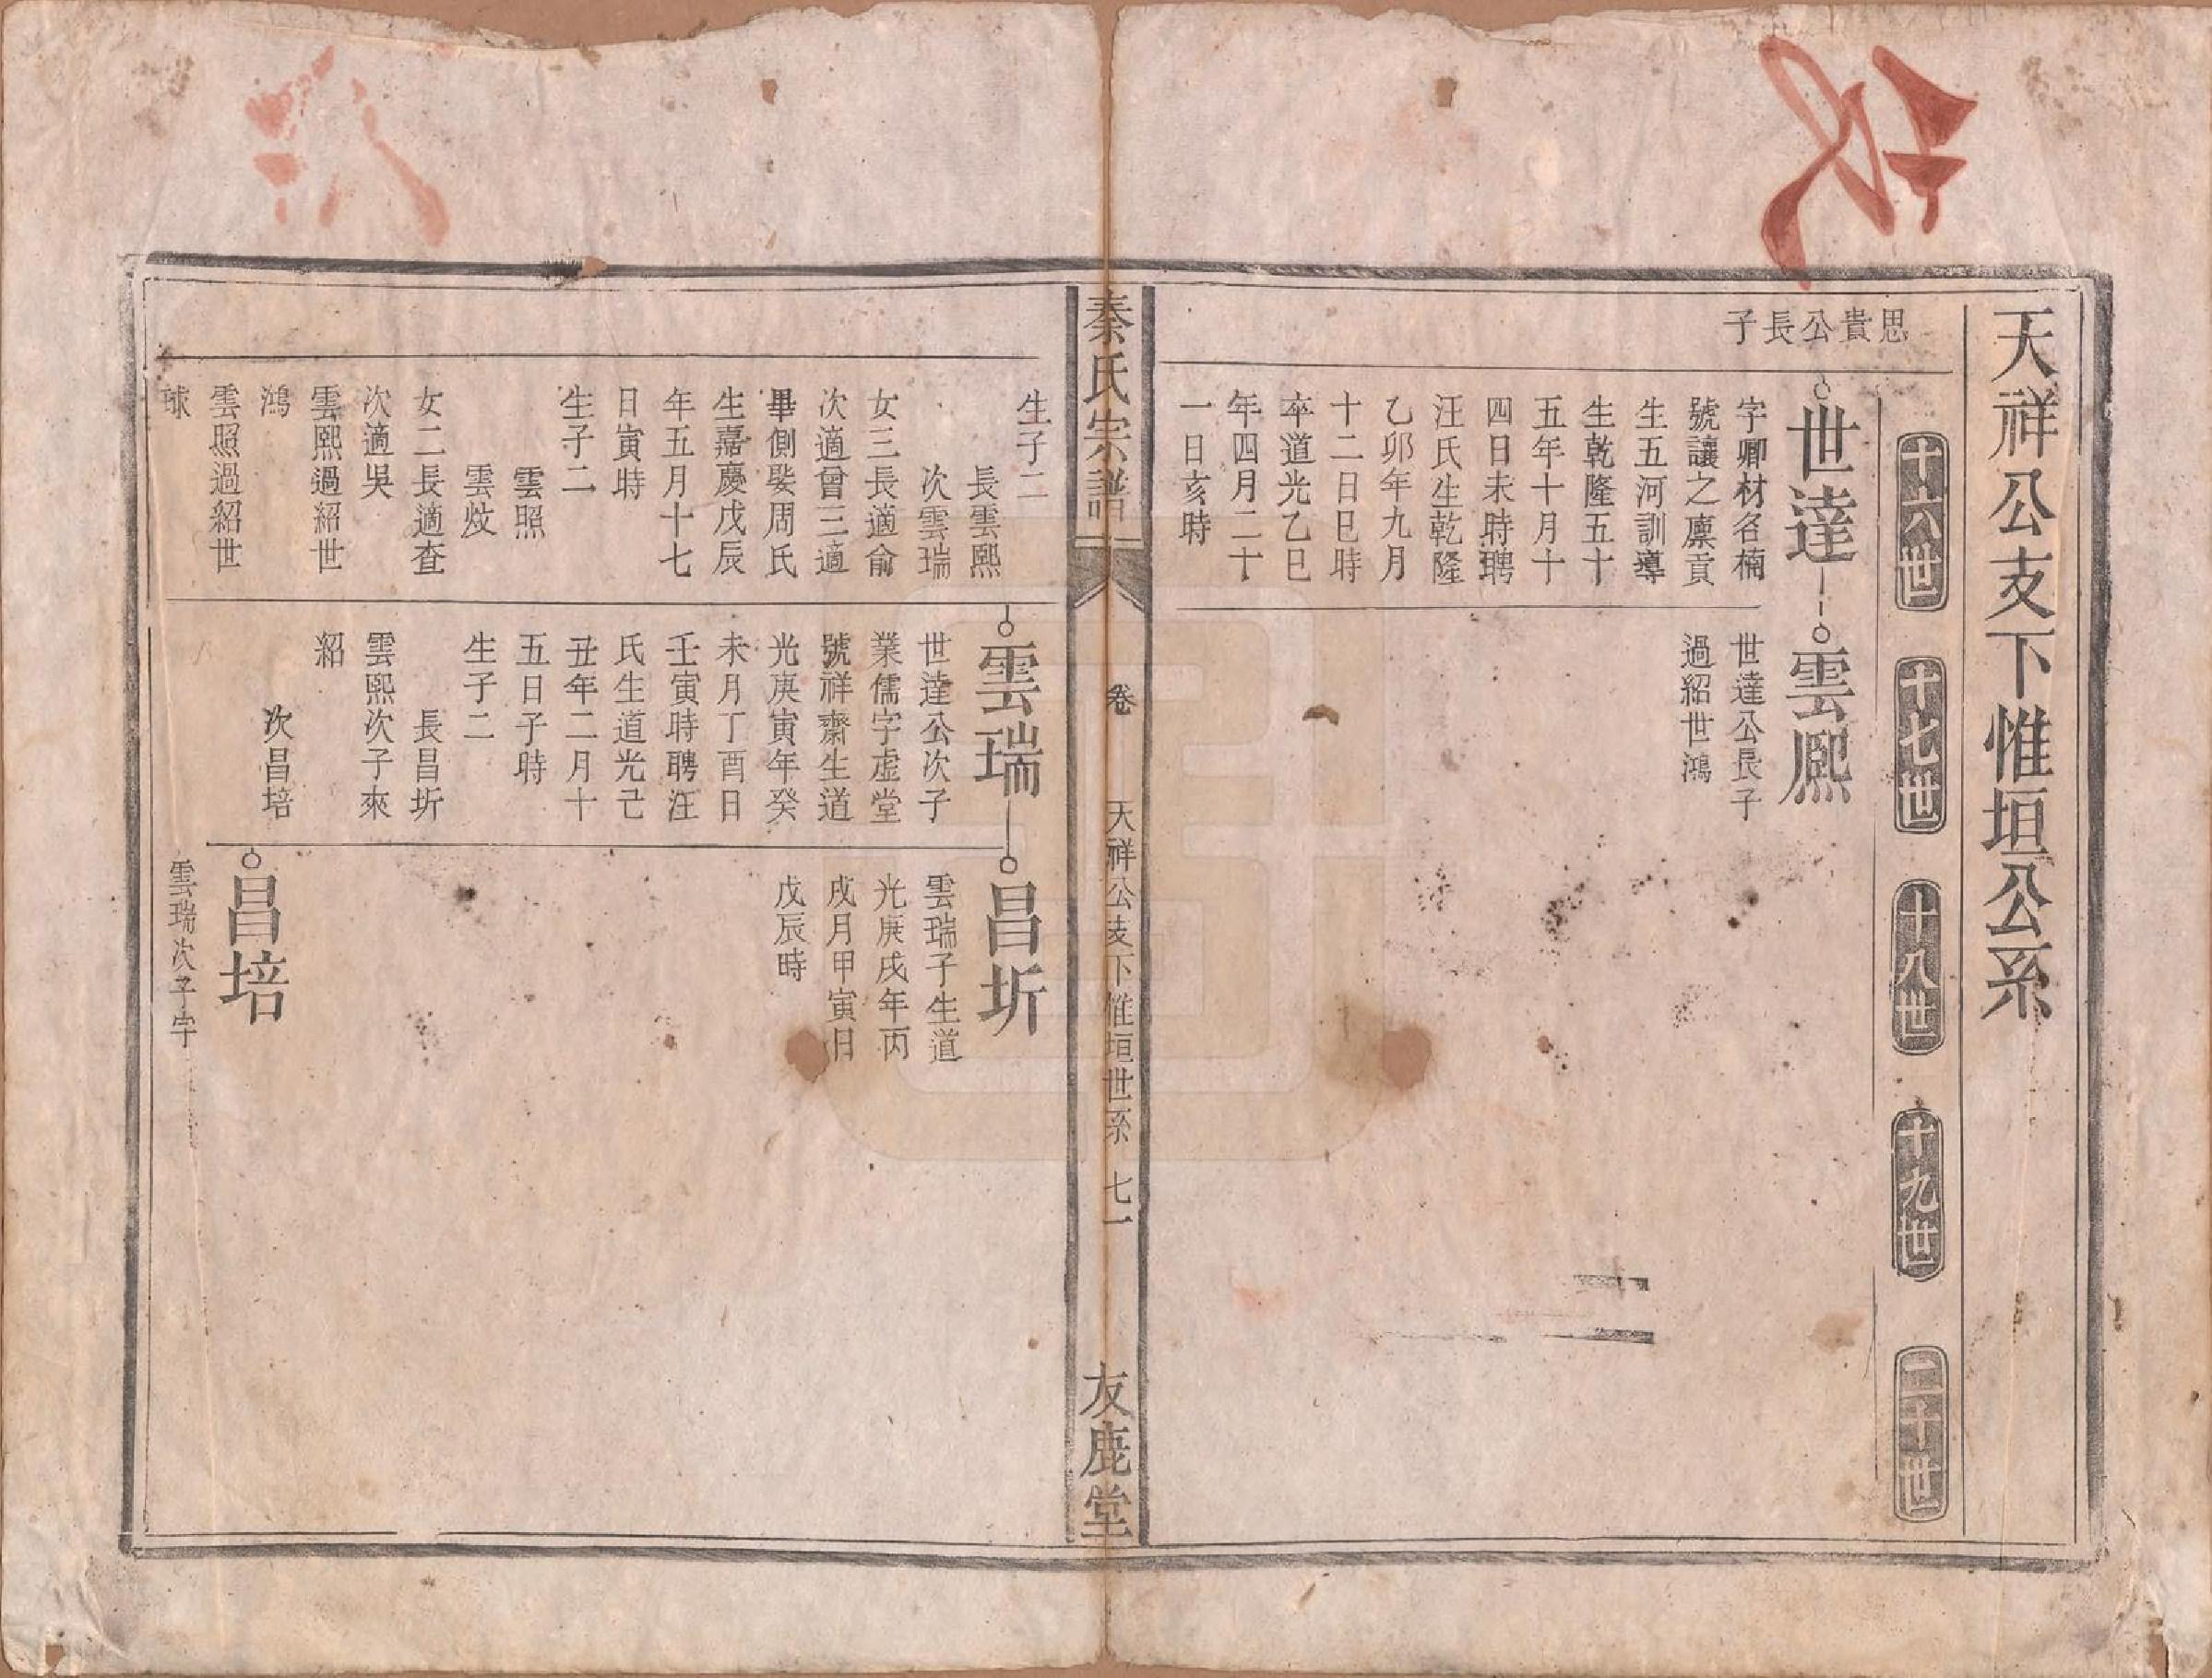 天祥公支下惟垣公系
十六世
十七世
十八世
十九世
二十世
思貴公長子
世達
字卿材名楠
號讓之廩貢
生五河訓導
生乾隆五十
五年十月十
四日未時聘
汪氏生乾隆
乙卯年九月
十二日巳時
卒道光乙巳
年四月二十
一日亥時
雲熙
世達公長子
過紹世鴻
秦氏宗譜
卷
天祥公支下惟垣世系
七一
友鹿堂
生子二
長雲熙
次雲瑞
女三長適俞
次適曾三適
畢側娶周氏
生嘉慶戊辰
年五月十七
日寅時
生子二
雲照
雲炆
女二長適查
次適吳
雲熙過紹世
鴻
雲照過紹世
球
雲瑞
世達公次子
業儒字虛堂
號祥齋生道
光庚寅年癸
未月丁酉日
壬寅時聘汪
氏生道光己
丑年二月十
五日子時
生子二
長昌圻
雲熙次子來
紹
次昌培
昌圻
雲瑞子生道
光庚戌年丙
戌月甲寅日
戊辰時
昌培
雲瑞次子字